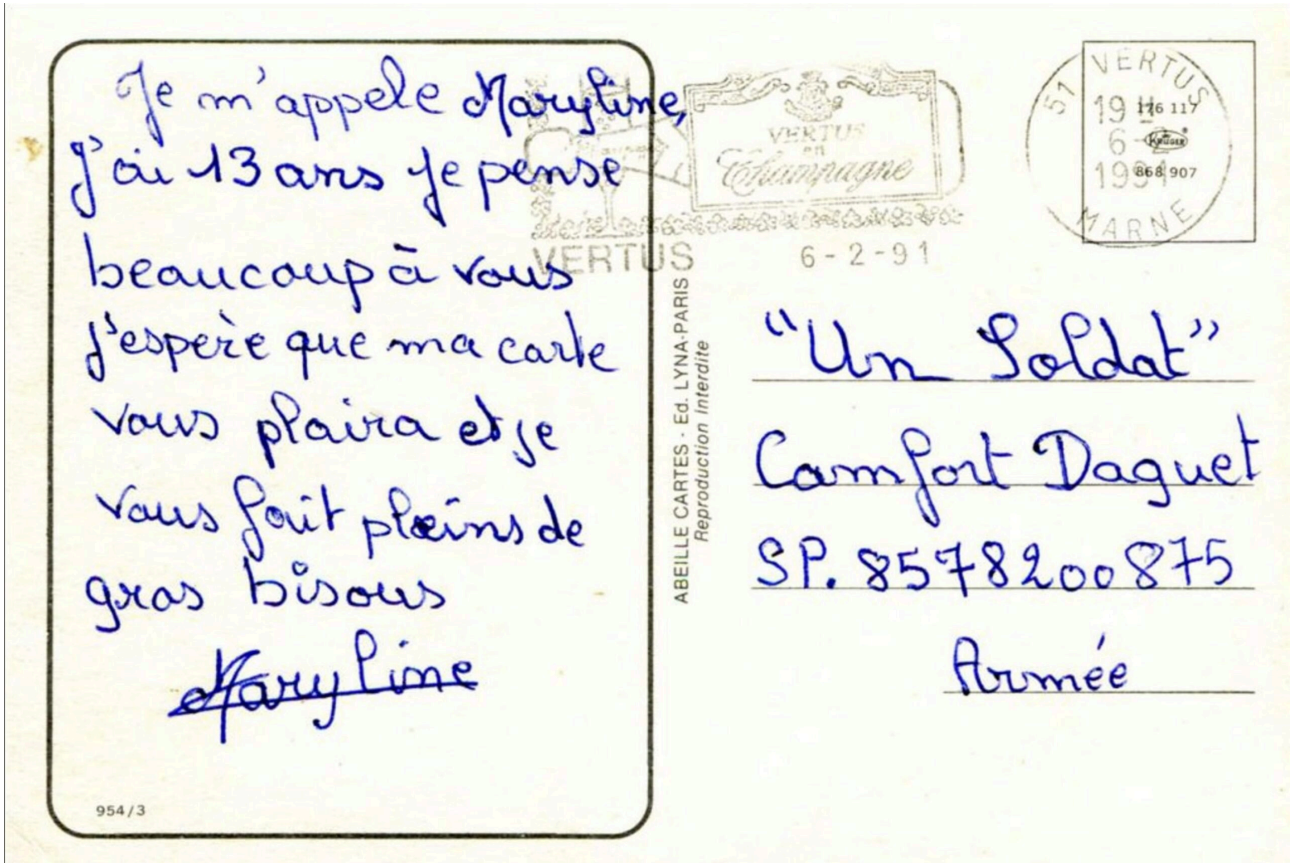 Je m'appele Maryline,
j'ai 13 ans je pense
beaucoup à vous
j'espère que ma carte
vous plaira et je
vous fait pleins de
gros bisous
Maryline
954/3
VERTUS
en
Champagne
VERTUS 6-2-91
51 VERTUS
19 H
6-2
1991
MARNE
176 117
KRUGER
868 907
ABEILLE CARTES - Ed. LYNA-PARIS
Reproduction Interdite
"Un Soldat"
Comfort Daguet
SP. 8578200875
Armée